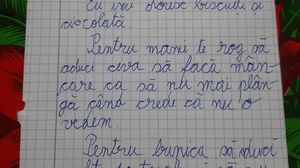 Eu îmi doresc biscuiți și
ciocolată.
Pentru mami te rog să
aduci ceva să facă mân-
care ca să nu mai plân-
gă când crede că nu o
vedem.
Pentru bunica să aduci